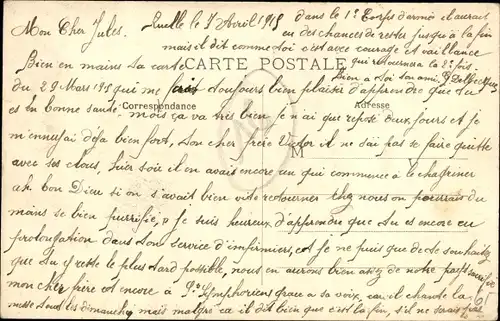 Mon Cher Jules. Ruelle le 7 Avril 1915
dans le 1e Corps d'armée il aurait
eu des chances de rester jusqu'à la fin
mais il dit comme soi c'est avec courage et vaillance
qui retournera la 2e fois.
Bien en mains sa carte
CARTE POSTALE
Bien a toi ton ami
du 29 Mars 1915 qui me fait toujours bien plaisir d'apprendre que tu
Correspondance
Adresse
es en bonne santé, mois ça va très bien je n'ai que reposé deux jours et je
m'ennuyai déja bien fort, son cher frère Victor il ne s'ai pas se faire quitte
M
avec ses clous, hier soir il en avais encore un qui commence à le chagriner
ah. Bon Dieu si on s'avait bien vite retourner chez nous on pourrais du
mains se bien purrifié, je suis heureux d'apprendre que tu es encore en
prolongation dans son service d'infirmiers, et je ne puis que de te souhaiter
que tu y reste le plus tard possible, nous en aurons bien assez de notre pays
mon cher père est encore à St Symphorien grace a sa voix, car il chante la
messe tout les dimanches mais malgré ça il dit bien que c'est la fin, s'il ne serais pas